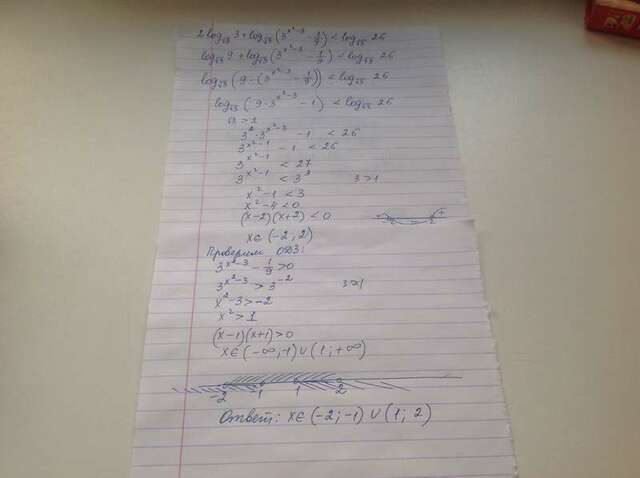 2 log√3 3 + log√3 (3^(x²-3) - 1/9) < log√3 26
log√3 9 + log√3 (3^(x²-3) - 1/9) < log√3 26
log√3 (9 · (3^(x²-3) - 1/9)) < log√3 26
log√3 (9 · 3^(x²-3) - 1) < log√3 26
3² · 3^(x²-3) - 1 < 26
3^(x²-1) - 1 < 26
3^(x²-1) < 27
3^(x²-1) < 3³ 3>1
x² - 1 < 3
x² - 4 < 0
(x-2)(x+2) < 0
x∈ (-2; 2)
Проверим ОДЗ:
3^(x²-3) - 1/9 > 0
3^(x²-3) > 3^(-2) 3>1
x² - 3 > -2
x² > 1
(x-1)(x+1) > 0
x∈ (-∞; -1) ∪ (1; +∞)
-2 -1 1 2
Ответ: x∈ (-2; -1) ∪ (1; 2)